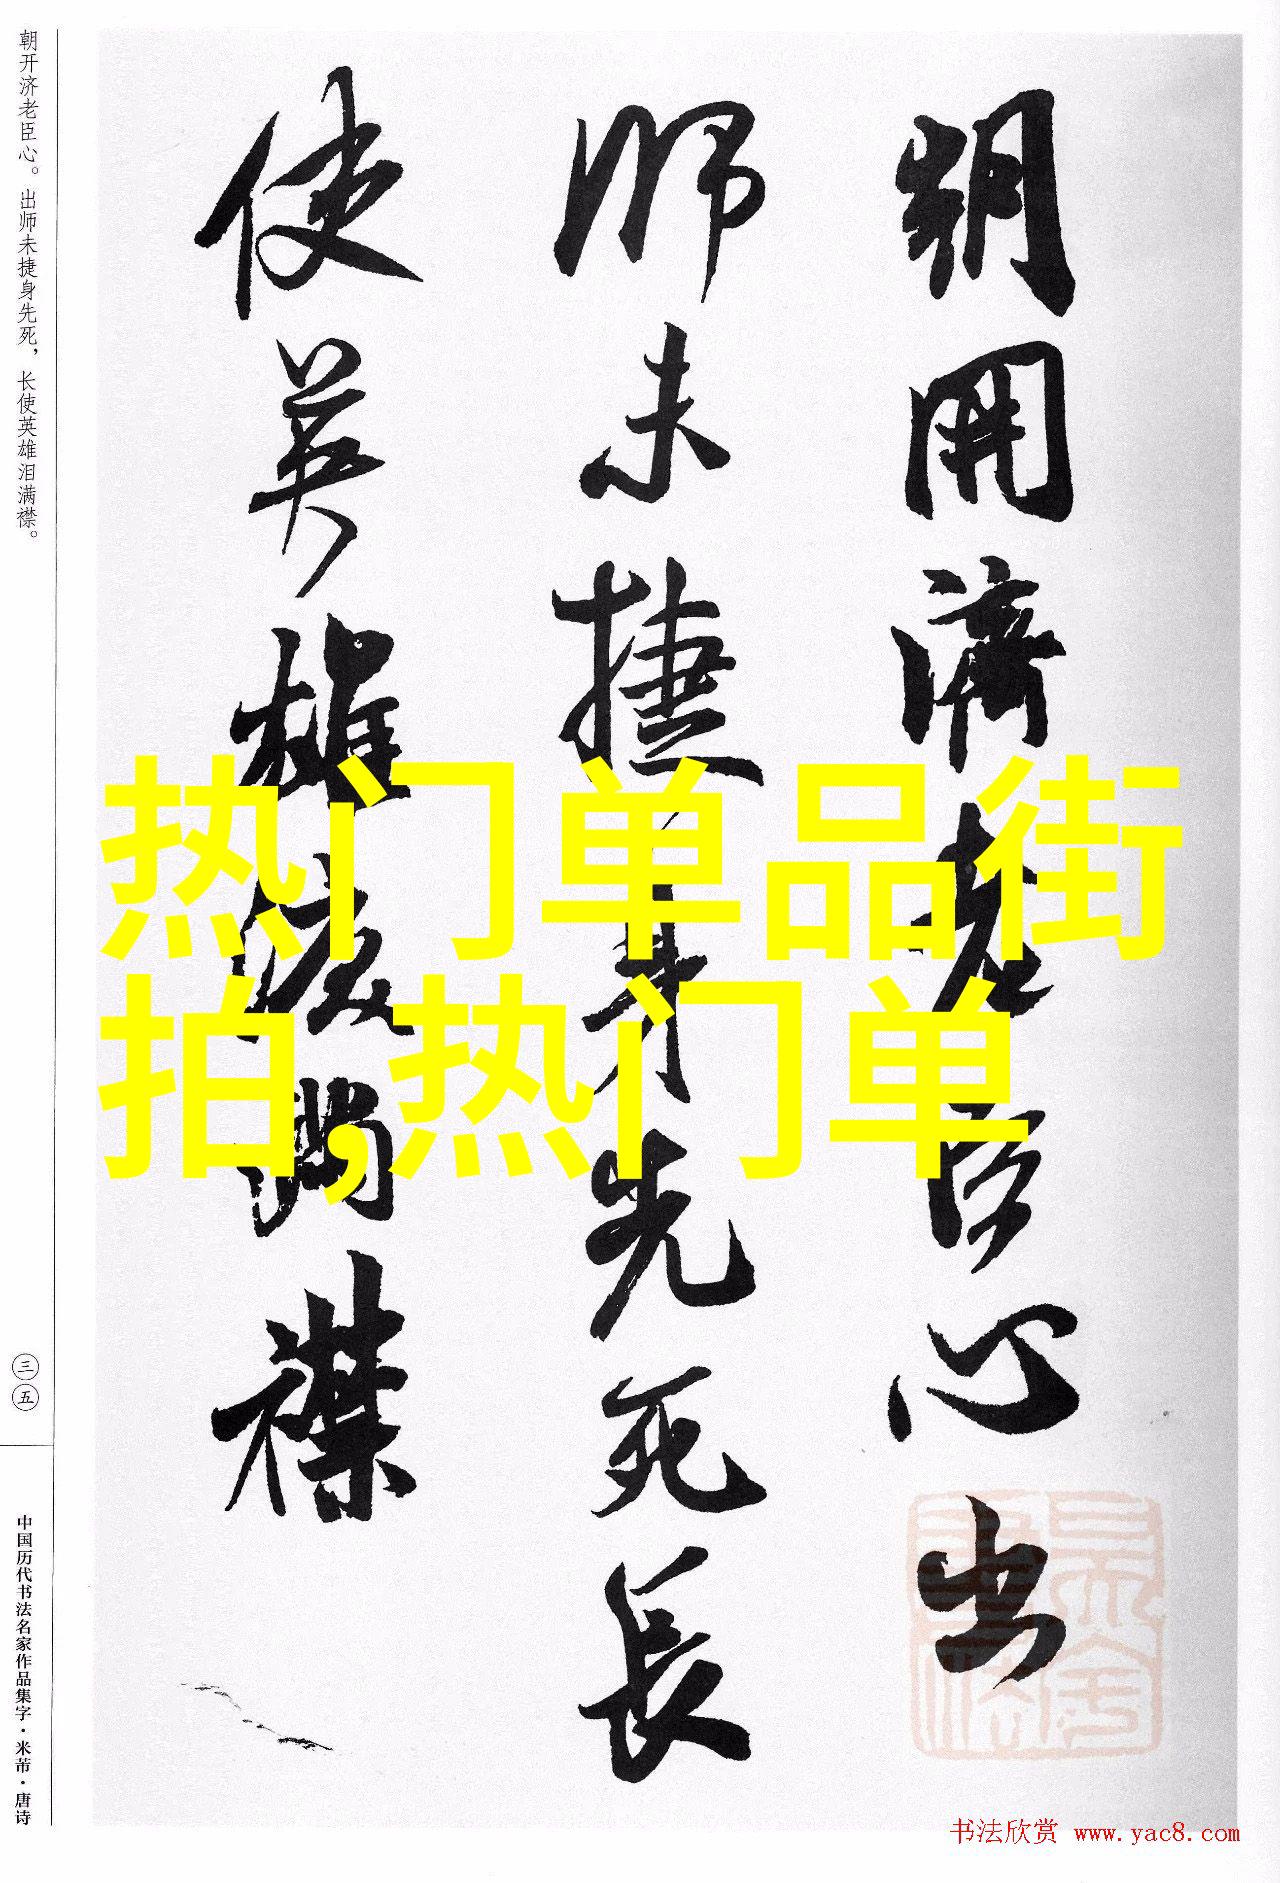 朝開濟老臣心出
師未捷身先死長
使英雄淚滿襟
朝开济老臣心。出师未捷身先死，长使英雄泪满襟。
三五
中国历代书法名家作品集字·米芾·唐诗
热门单品街
拍,热门单
书法欣赏 www.yac8.com